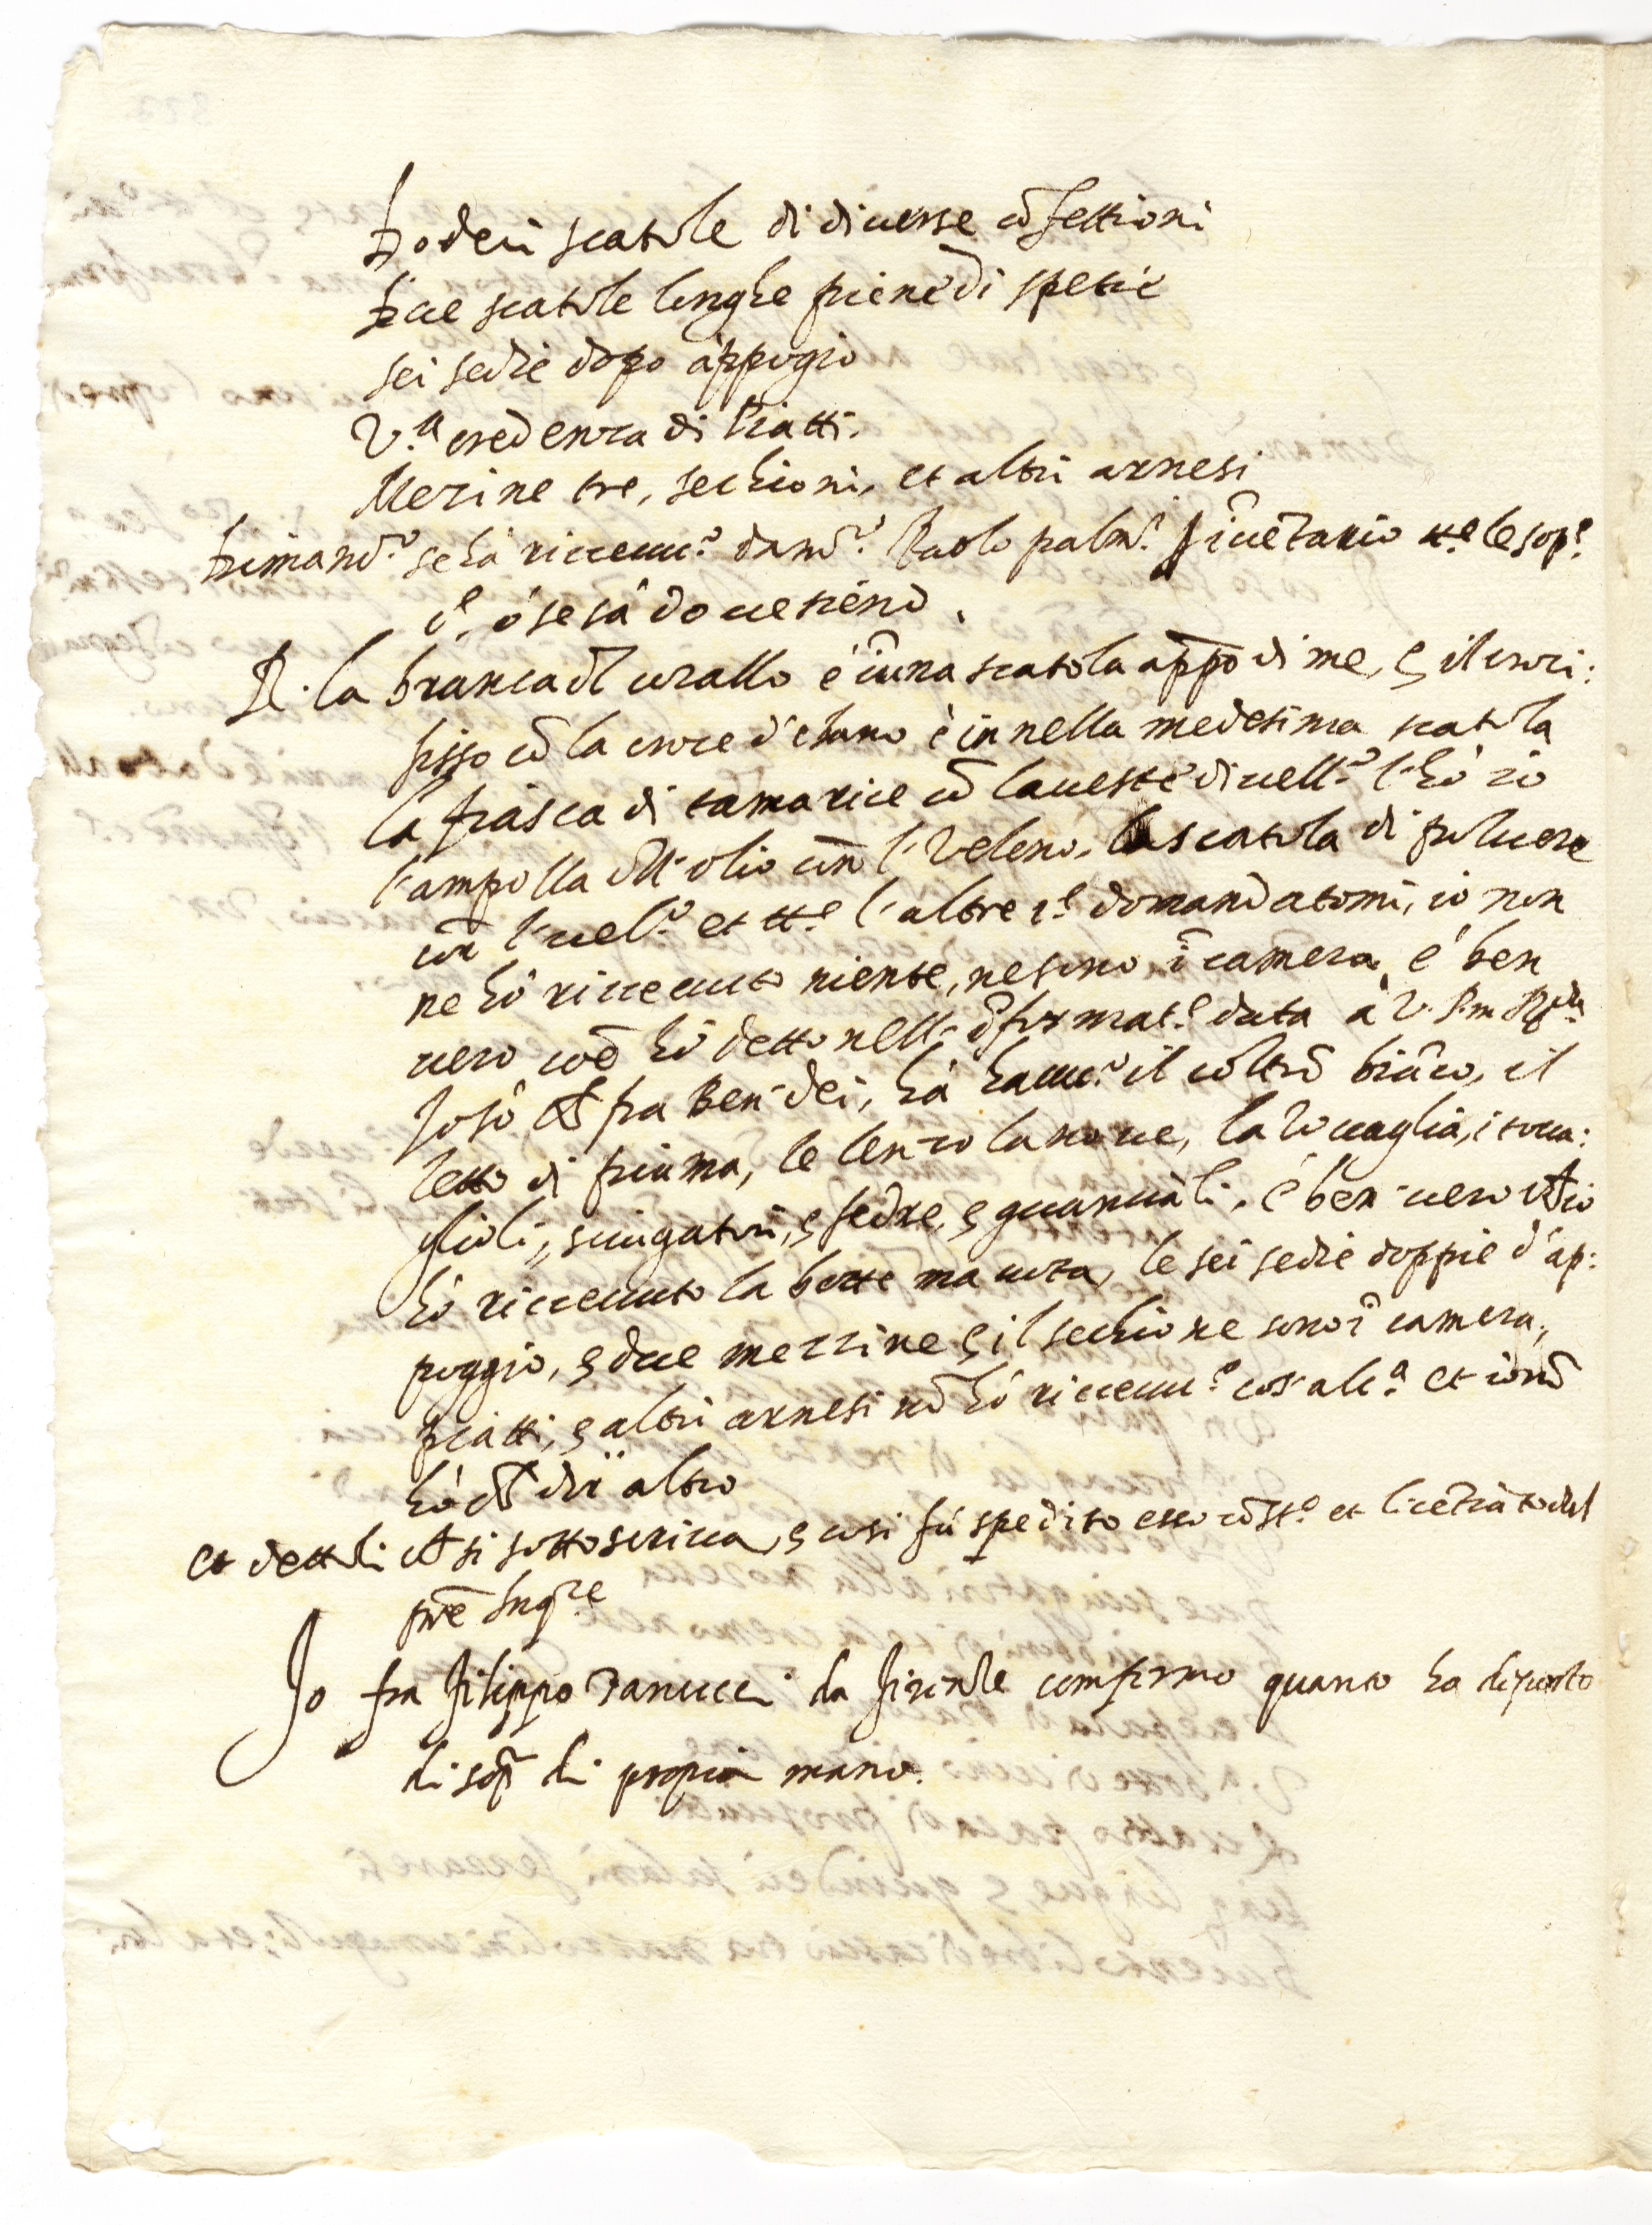 Dodeci scatole di diuerse cōfettioni
Due scatole longhe piene di spetie
sei sedie dopo appogio
V.ª credenza di Piatti.
Mezine tre, sechioni, et altri arnesi
Dimand.º se hà riceuu.º da md.º Paolo palm.º p īuētario tt.e le sop.e
c.e ò se sà doue sieno.
R. la branca dl corallo è ĩ una scatola appō di me, e il croci:
fisso cō la croce d'ebano è in nella medesima scatola
la fiasca di tamarice cō la ueste di uell.º l'hò io
l'ampolla dll'olio cōn l'Veleno, la scatola di poluere
cōn l'uel.º et tt.e l'altre c.e domandatomi, io non
ne hò riceuuto niente, ne sono ī camera, è ben
uero coē hò detto nell'īformat.e data à V. P. m R.da
solo ch fra Ben-dei, hà hauu.º il coltrō biāco, il
letto di piuma, le lenzola noue, la Touaglia, i toua:
glioli, sciugatori, e fedre, e guanciali. è ben uero ch io
hò riceuuto la botte ma uota, le sei sedie doppie d'ap:
poggio, e due mezzine e il sechione sono ī camera,
piatti, e altri arnesi nō hò riceuu.º cos'alc.ª et io nō
hò ch dir altro
et dettoli ch si sottoscriua, e cosi fù spedito esso cōst.º et licētiato dal
prē Inq.re
Jo fra Filippo Vanucci da Firenze confermo quanto ho deposto
di sop̄ di propia mano.